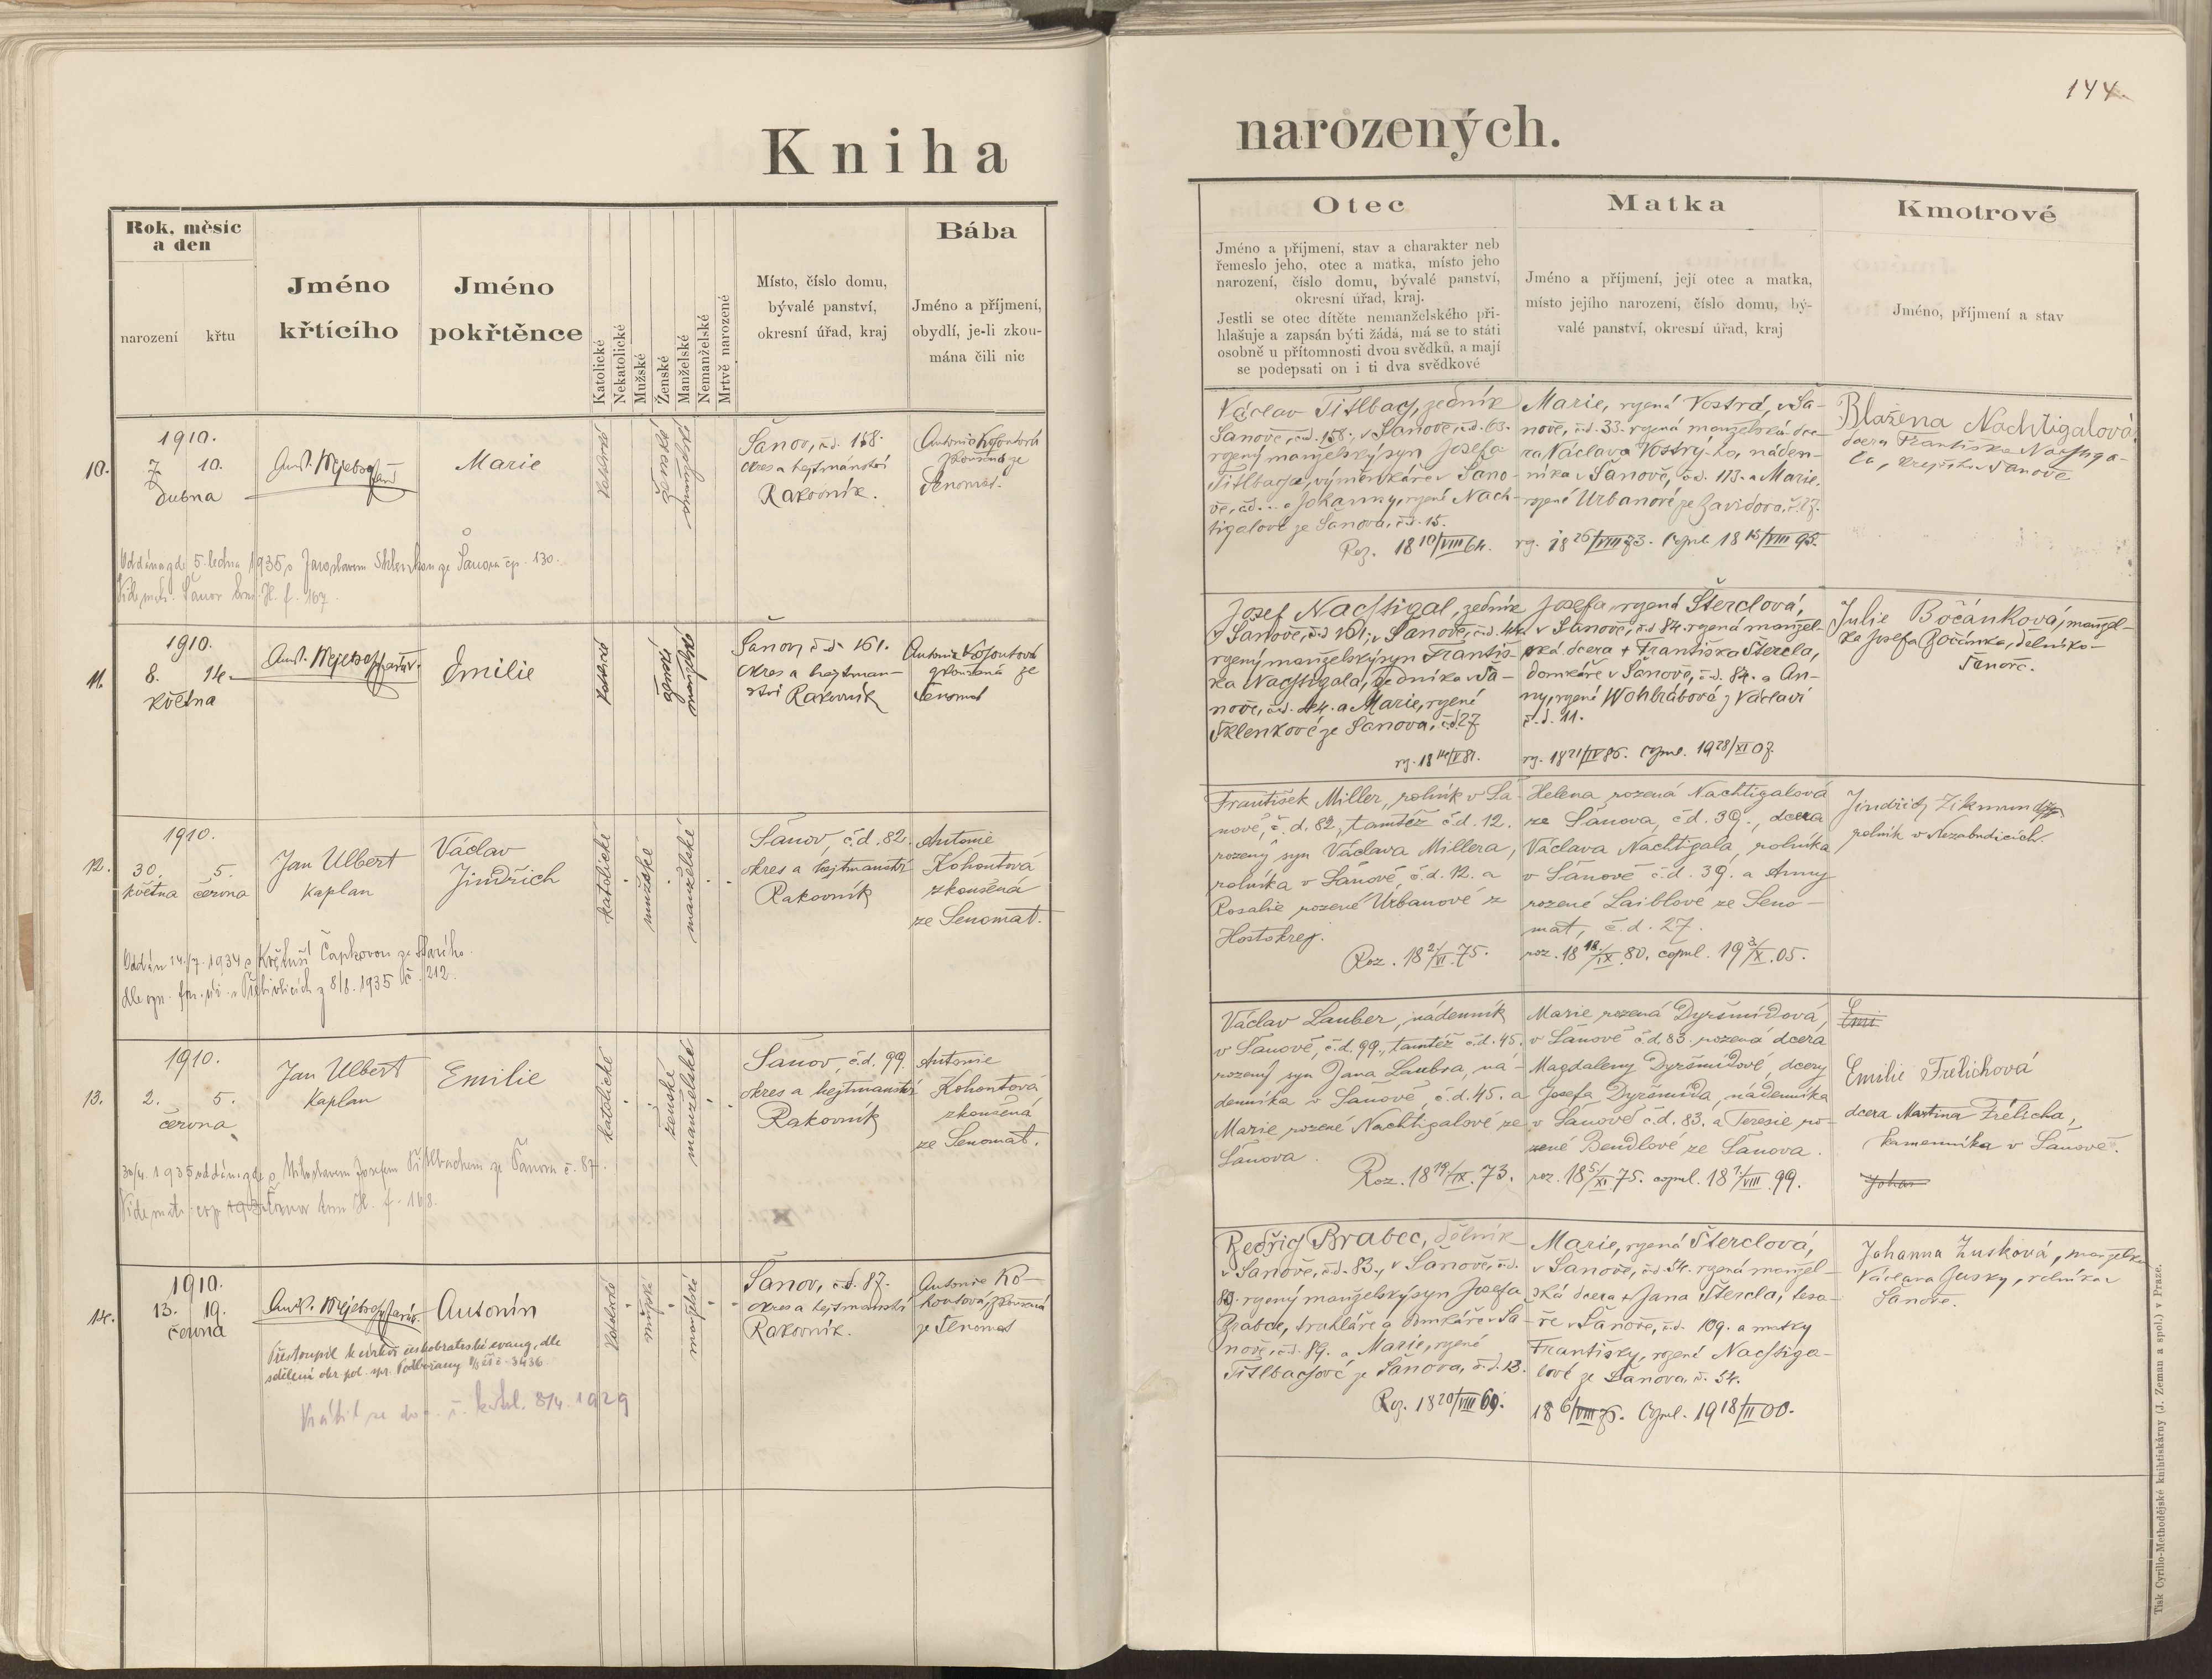 144.
Kniha narozených.
Rok, měsíc
a den
narození
křtu
Jméno
křtícího
Jméno
pokřtěnce
Katolické
Nekatolické
Mužské
Ženské
Manželské
Nemanželské
Mrtvě narozené
Místo, číslo domu,
bývalé panství,
okresní úřad, kraj
Bába
Jméno a příjmení,
obydlí, je-li zkou-
mána čili nic
Otec
Jméno a příjmení, stav a charakter neb
řemeslo jeho, otec a matka, místo jeho
narození, číslo domu, bývalé panství,
okresní úřad, kraj.
Jestli se otec dítěte nemanželského při-
hlašuje a zapsán býti žádá, má se to státi
osobně u přítomnosti dvou svědků, a mají
se podepsati on i ti dva svědkové
Matka
Jméno a příjmení, její otec a matka,
místo jejího narození, číslo domu, bý-
valé panství, okresní úřad, kraj
Kmotrové
Jméno, příjmení a stav
10.
1910.
7. 10.
dubna
Marie
katolické
ženské
manželské
Šanov, č.d. 158.
okres a hejtmanství
Rakovník.
Antonie Kohoutová
zkoušená ze
Senomat.
Václav Titlbach, zedník
v Šanově, č.d. 158., v Šanově, č.d. 63.
rozený manželský syn Josefa
Titlbacha, výměnkáře v Šano-
vě, č.d... a Johanny, rozené Nach-
tigalové ze Šanova, č.d. 15.
Roz. 18 10/VIII 64.
Marie, rozená Vostrá, v Ša-
nově, č.d. 33. rozená manželská dce-
ra Václava Vostrý-ho, náden-
níka v Šanově, č.d. 113. a Marie,
rozené Urbanové ze Zavidova, č. 27.
roz. 18 26/VIII 73. Copul. 18 15/VIII 95.
Blažena Nachtigalová
dcera Františka Nachtiga-
la, krejčího v Šanově
Oddána zde 5. ledna 1935 s Jaroslavem Sklenkou ze Šanova čp. 130.
Vide matr. Šanov tom. II. f. 167.
11.
1910.
8. 14.
května
Emilie
katolické
ženské
manželské
Šanov, č.d. 161.
okres a hejtman-
ství Rakovník
Antonie Kohoutová
zkoušená ze
Senomat
Josef Nachtigal, zedník
v Šanově, č.d. 161., v Šanově, č.d. 44.
rozený manželský syn Františ-
ka Nachtigala, zedníka v Ša-
nově, č.d. 44. a Marie, rozené
Sklenkové ze Šanova, č.d. 27
roz. 18 14/V 81.
Josefa, rozená Šterclová,
v Šanově, č.d. 84. rozená manžel-
ská dcera + Františka Štercla,
domkáře v Šanově, č.d. 84. a An-
ny, rozené Wohlrábová z Václaví
č.d. 11.
roz. 18 21/IV 86. Copul. 19 28/XI 07.
Julie Bočánková, manžel-
ka Josefa Bočánka, dělníka v
Šanově.
12.
1910.
30. 5.
května června
Jan Ulbert
kaplan
Václav
Jindřich
katolické
mužské
manželské
Šanov, č.d. 82.
okres a hejtmanství
Rakovník
Antonie
Kohoutová
zkoušená
ze Senomat.
František Miller, rolník v Ša-
nově, č.d. 82, tamtéž č.d. 12.
rozený syn Václava Millera,
rolníka v Šanově, č.d. 12. a
Rosalie rozené Urbanové z
Hostokrej.
Roz. 18 2/VI. 75.
Helena rozená Nachtigalová
ze Šanova, č.d. 39., dcera
Václava Nachtigala, rolníka
v Šanově č.d. 39. a Anny
rozené Laiblové ze Seno-
mat, č.d. 27.
roz. 18 18/IX. 80. copul. 19 3/X. 05.
Jindřich Zikmund
rolník v Nezabudicích.
Oddán 14./7. 1934 s Květuší Čapkovou ze Starého
dle ozn. v Třebívlicích z 8/8. 1935 č. 212.
13.
1910.
2. 5.
června
Jan Ulbert
kaplan
Emilie
katolické
ženské
manželské
Šanov, č.d. 99.
okres a hejtmanství
Rakovník
Antonie
Kohoutová
zkoušená
ze Senomat.
Václav Lauber, nádenník
v Šanově, č.d. 99., tamtéž č.d. 45.
rozený syn Jana Laubra, ná-
denníka v Šanově, č.d. 45. a
Marie rozené Nachtigalové ze
Šanova.
Roz. 18 19/IX. 73.
Marie rozená Dyršmídová,
v Šanově č.d. 83. rozená dcera
Magdaleny Dyršmídové, dcery
Josefa Dyršmída, nádenníka
v Šanově č.d. 83. a Teresie ro-
zené Bendlové ze Šanova.
roz. 18 5/XI. 75. copul. 18 7./VIII. 99.
Emi
Emilie Frélichová
dcera Martina Frélicha,
kameníka v Šanově.
Johan
30/4. 1935 oddána zde s Miloslavem Josefem Titlbachem ze Šanova č. 87.
Vide matr. cop. Šanov tom II. f. 168.
14.
1910.
13. 19.
června
Antonín
katolické
mužské
manželské
Šanov, č.d. 87.
okres a hejtmanství
Rakovník.
Antonie Ko-
houtová, zkoušená
ze Senomat
Bedřich Brabec, dělník
v Šanově, č.d. 83., v Šanově, č.d.
89. rozený manželský syn Josefa
Brabce, truhláře a domkáře v Ša-
nově, č.d. 89. a Marie, rozené
Titlbachové ze Šanova, č.d. 13.
Roz. 18 20/VIII 69.
Marie, rozená Šterclová,
v Šanově, č.d. 54. rozená manžel-
ská dcera + Jana Štercla, tesa-
ře v Šanově, č.d. 109. a matky
Františky, rozené Nachtiga-
lové ze Šanova, č. 54.
18 6/VIII 76. Copul. 19 18/II 00.
Johanna Zusková, manželka
Václava Zusky, rolníka v
Šanově.
Přestoupil k církvi českobratrské evang. dle
sdělení okr. pol. spr. Podbořany č. 3436
Vrátil se do círk. ř. kathol. 8/4. 1929
Tisk Cyrillo-Methodějské knihtiskárny (J. Zeman a spol.) v Praze.